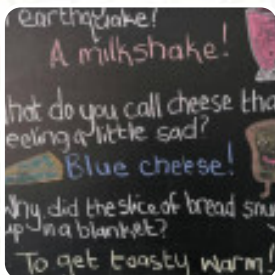 earthquake?
A milkshake!
hat do you call cheese tha
eeling a little sad?
Blue cheese!
Why did the slice of bread snu
up in a blanket?
To get toasty warm!